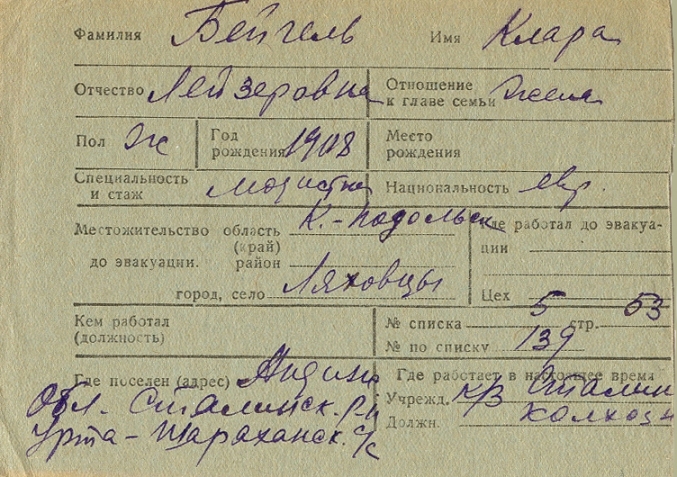 Фамилия Бейгель Имя Клара
Отчество Лейзеровна Отношение к главе семьи Жена
Пол Ж Год рождения 1908 Место рождения
Специальность и стаж Национальность евр.
Местожительство область (край) К.-Подольск Где работал до эвакуации
до эвакуации. район
город, село Ляховцы Цех
Кем работал (должность) № списка 5 стр. 53
№ по списку 139
Где поселен (адрес) Андижа Где работает в настоящее время
Обл. Сталинск. р-н Учрежд. к/з Сталин
Урта-Шараханск. с/с Должн. колхозн